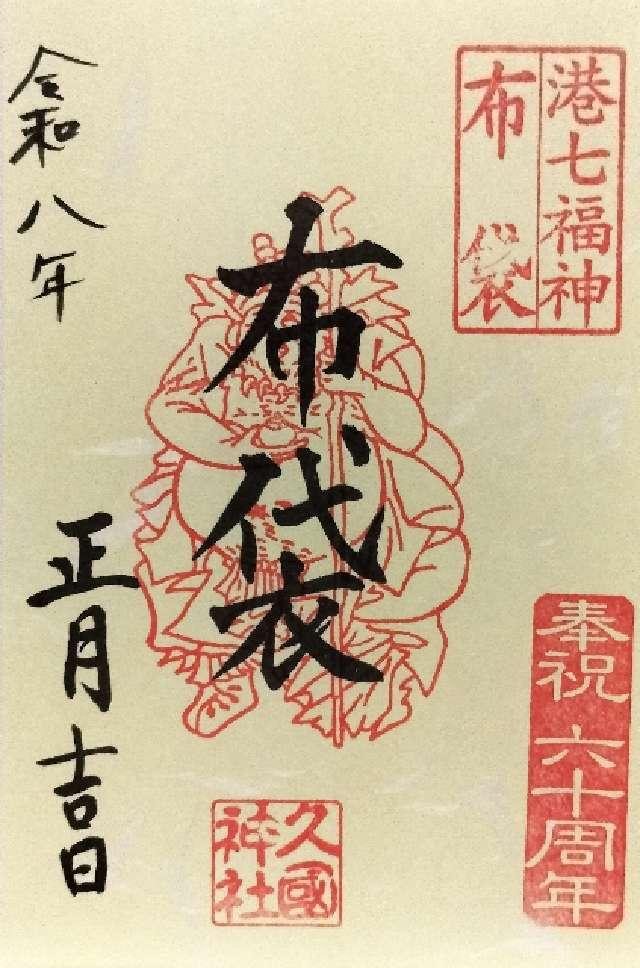 港七福神
布袋
奉祝 六十周年
布袋
久國
神社
令和八年
正月吉日